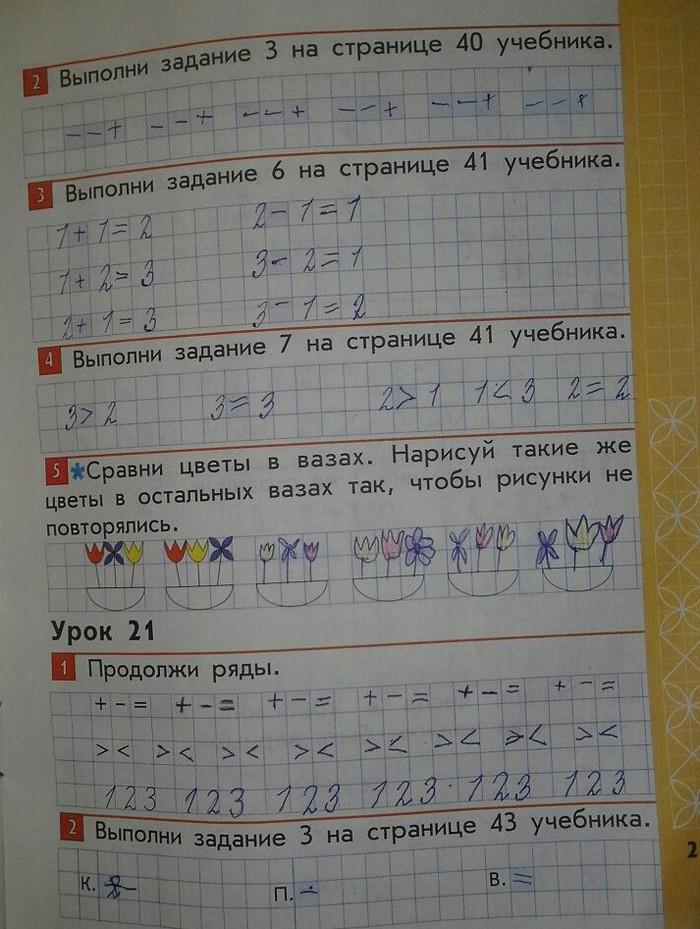 2 Выполни задание 3 на странице 40 учебника.
– – + – – + – – + – – + – – + – – +
3 Выполни задание 6 на странице 41 учебника.
1 + 1 = 2 2 – 1 = 1
1 + 2 = 3 3 – 2 = 1
2 + 1 = 3 3 – 1 = 2
4 Выполни задание 7 на странице 41 учебника.
3 > 2 3 = 3 2 > 1 1 < 3 2 = 2
5 * Сравни цветы в вазах. Нарисуй такие же
цветы в остальных вазах так, чтобы рисунки не
повторялись.
Урок 21
1 Продолжи ряды.
+ – = + – = + – = + – = + – = + – =
> < > < > < > < > < > < > < > <
1 2 3 1 2 3 1 2 3 1 2 3 1 2 3 1 2 3
2 Выполни задание 3 на странице 43 учебника.
К. П. – В. =
2